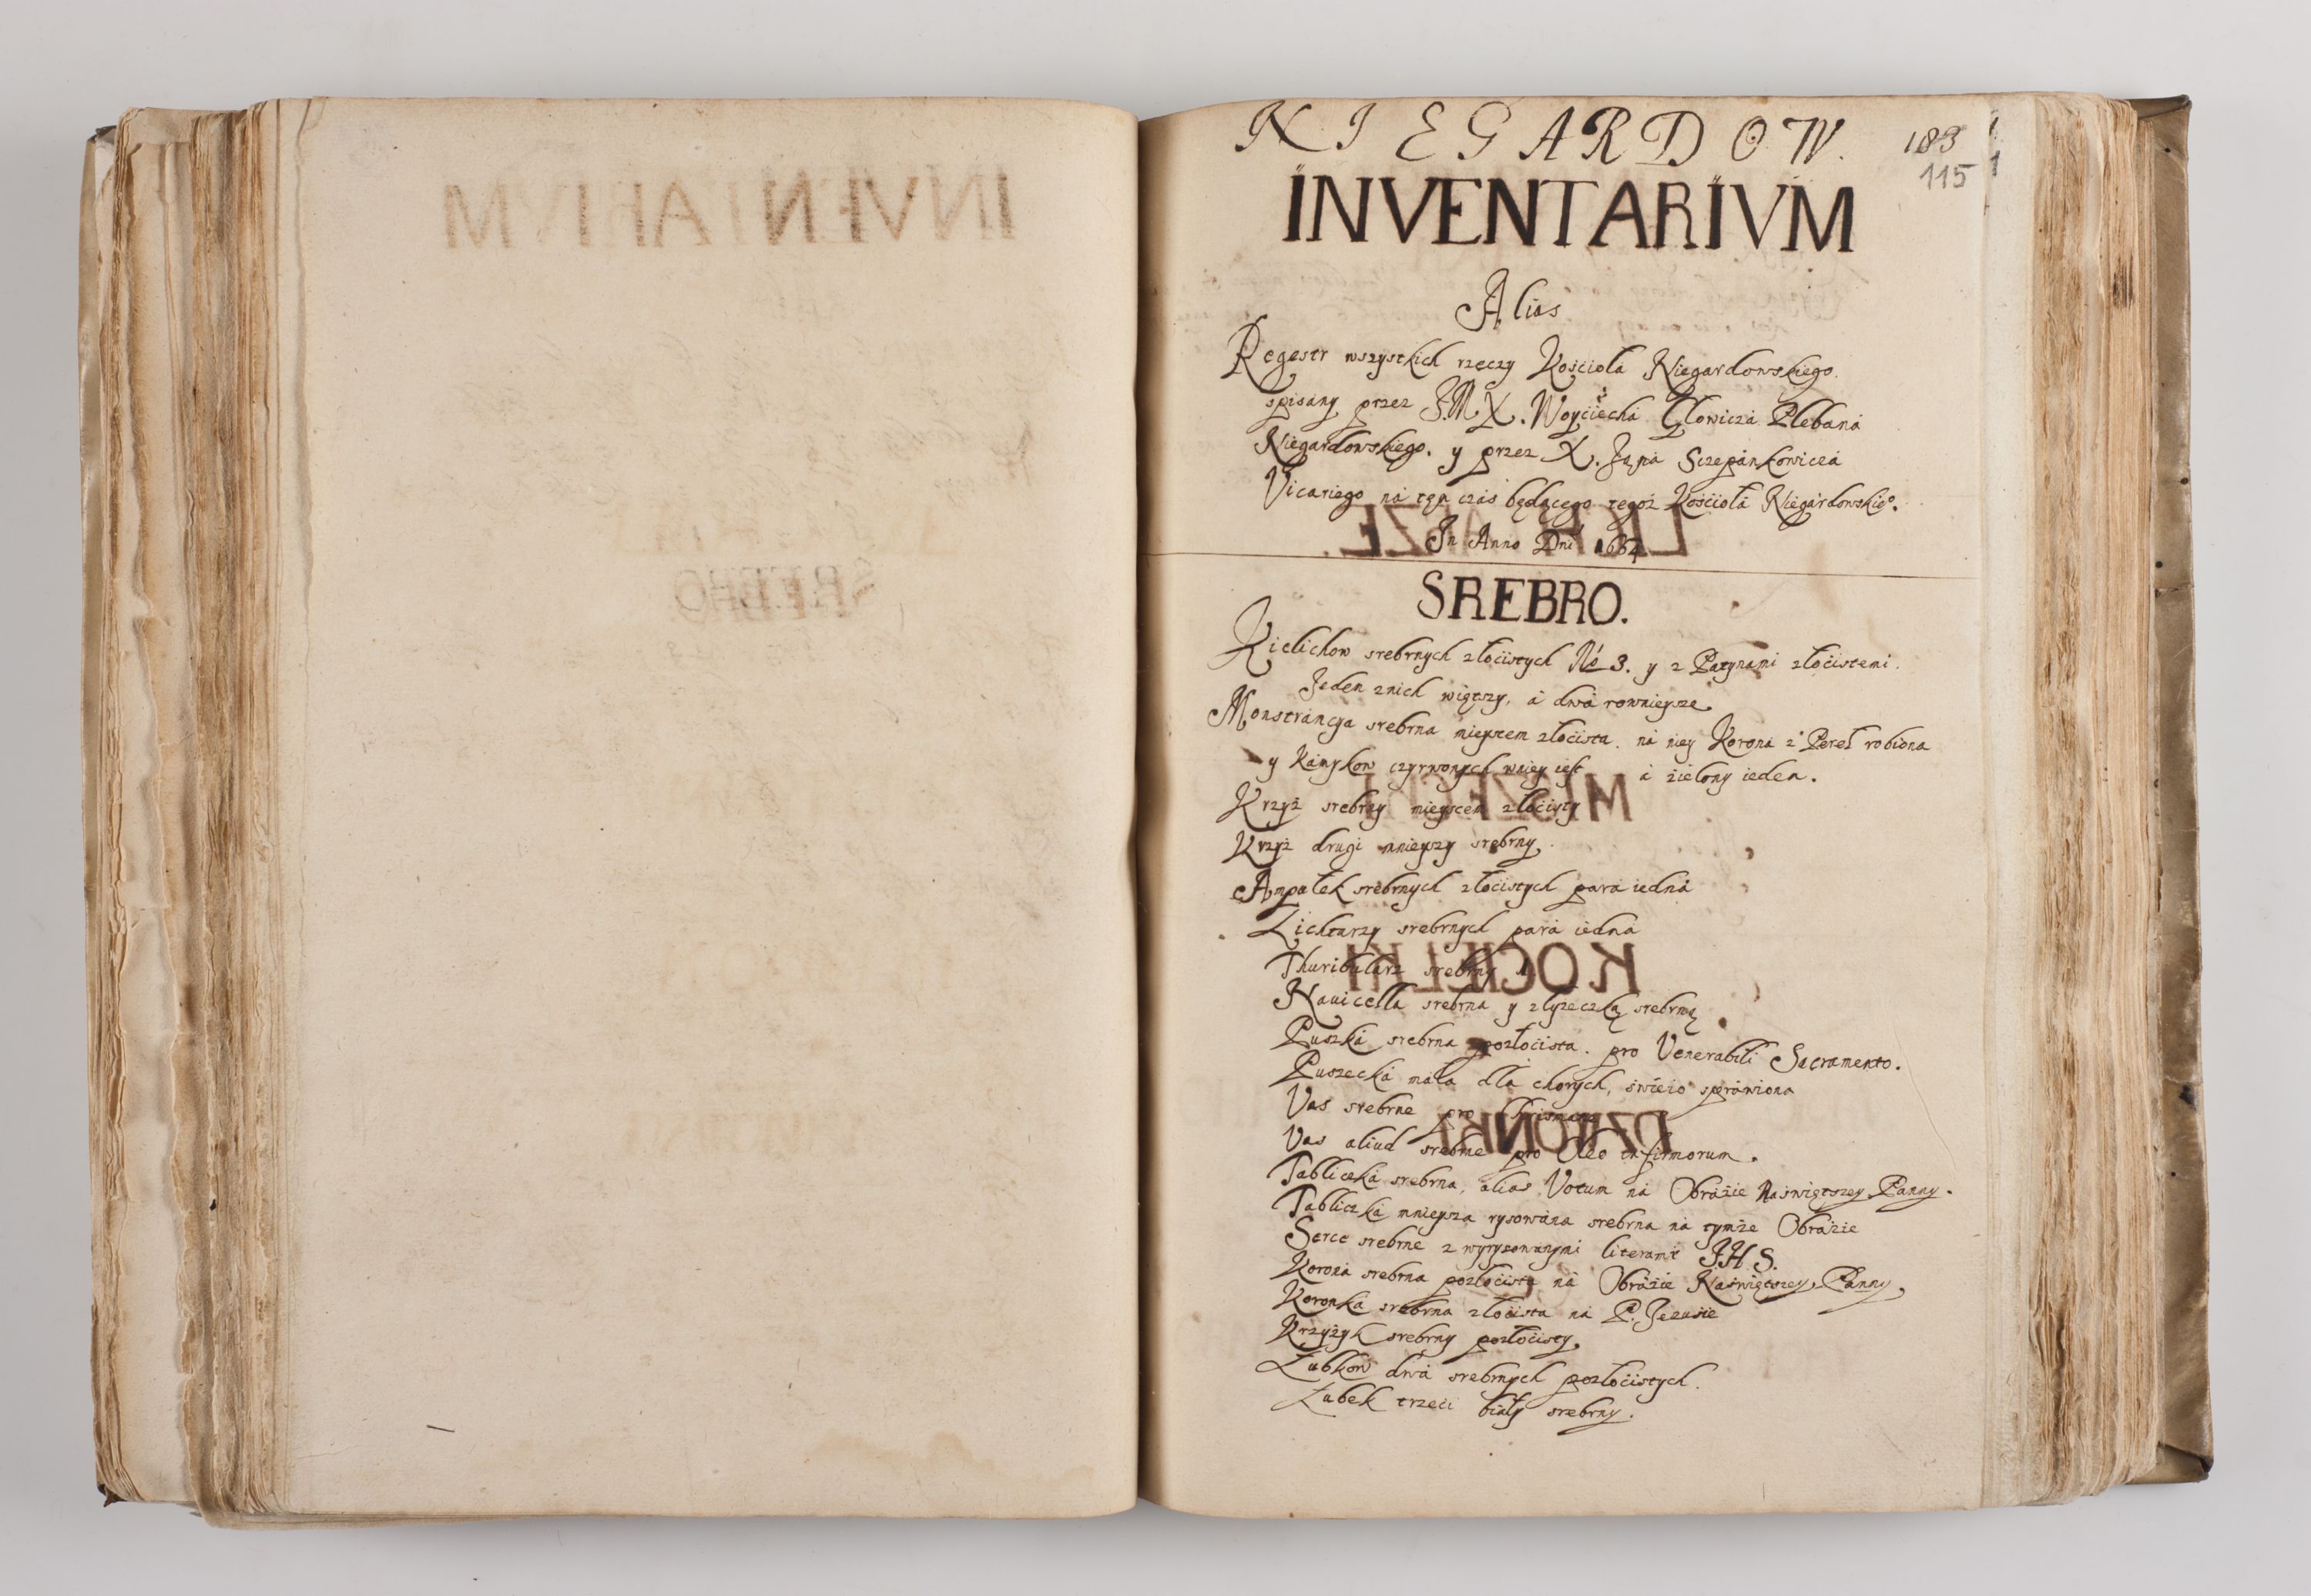 NIEGARDOW.
189
115
INVENTARIVM
Alias
Regestr wszystkich rzeczy Kościoła Niegardowskiego.
spisany przez J.M.X. Woyciecha Płebana
Niegardowskiego. y przez X. Jana Sczepankowicza
Vicariego na ten czas będącego tegoż Kościoła Niegardowskiego.
In Anno Dni
SREBRO.
Kielichow srebrnych złocistych No 3. y z Patynami złocistemi.
Jeden znich większy, á dwá rowniejsze
Monstrancya srebrna mieyscem złocista. ná niey Korona z Pereł robiona
y Kamykow czyrwonych wniey iest á źielony ieden.
Krzyż srebrny mieyscem złocisty
Krzyż drugi mnieyszy srebrny.
Ampałek srebrnych złocistych pará iedná
Lichtarzy srebrnych pará iedná
Thuribularz srebrny 1.
Nauicella srebrna y złyżeczką srebrną
Puszka srebrna pozłocista. pro Venerabili Sacramento.
Puszecka máła dlá chorych, świeżo spráwiona
Vas srebrne pro Chrismate
Vas aliud srebrne pro Oleo infirmorum.
Tabliczká srebrna, alias Votum ná Obráźie Naświętszey Panny.
Tabliczká mnieysza rysowána srebrna ná tymże Obráźie
Serce srebrne z wyrysowanymi literami JHS.
Koroná srebrna pozłocista ná Obráźie Naświętszey Panny.
Koronká srebrna złocista ná P. Jezusie
Krzyżyk srebrny pozłocisty.
Łubkow dwá srebrnych pozłocistych.
Łubek trzeci biały srebrny.